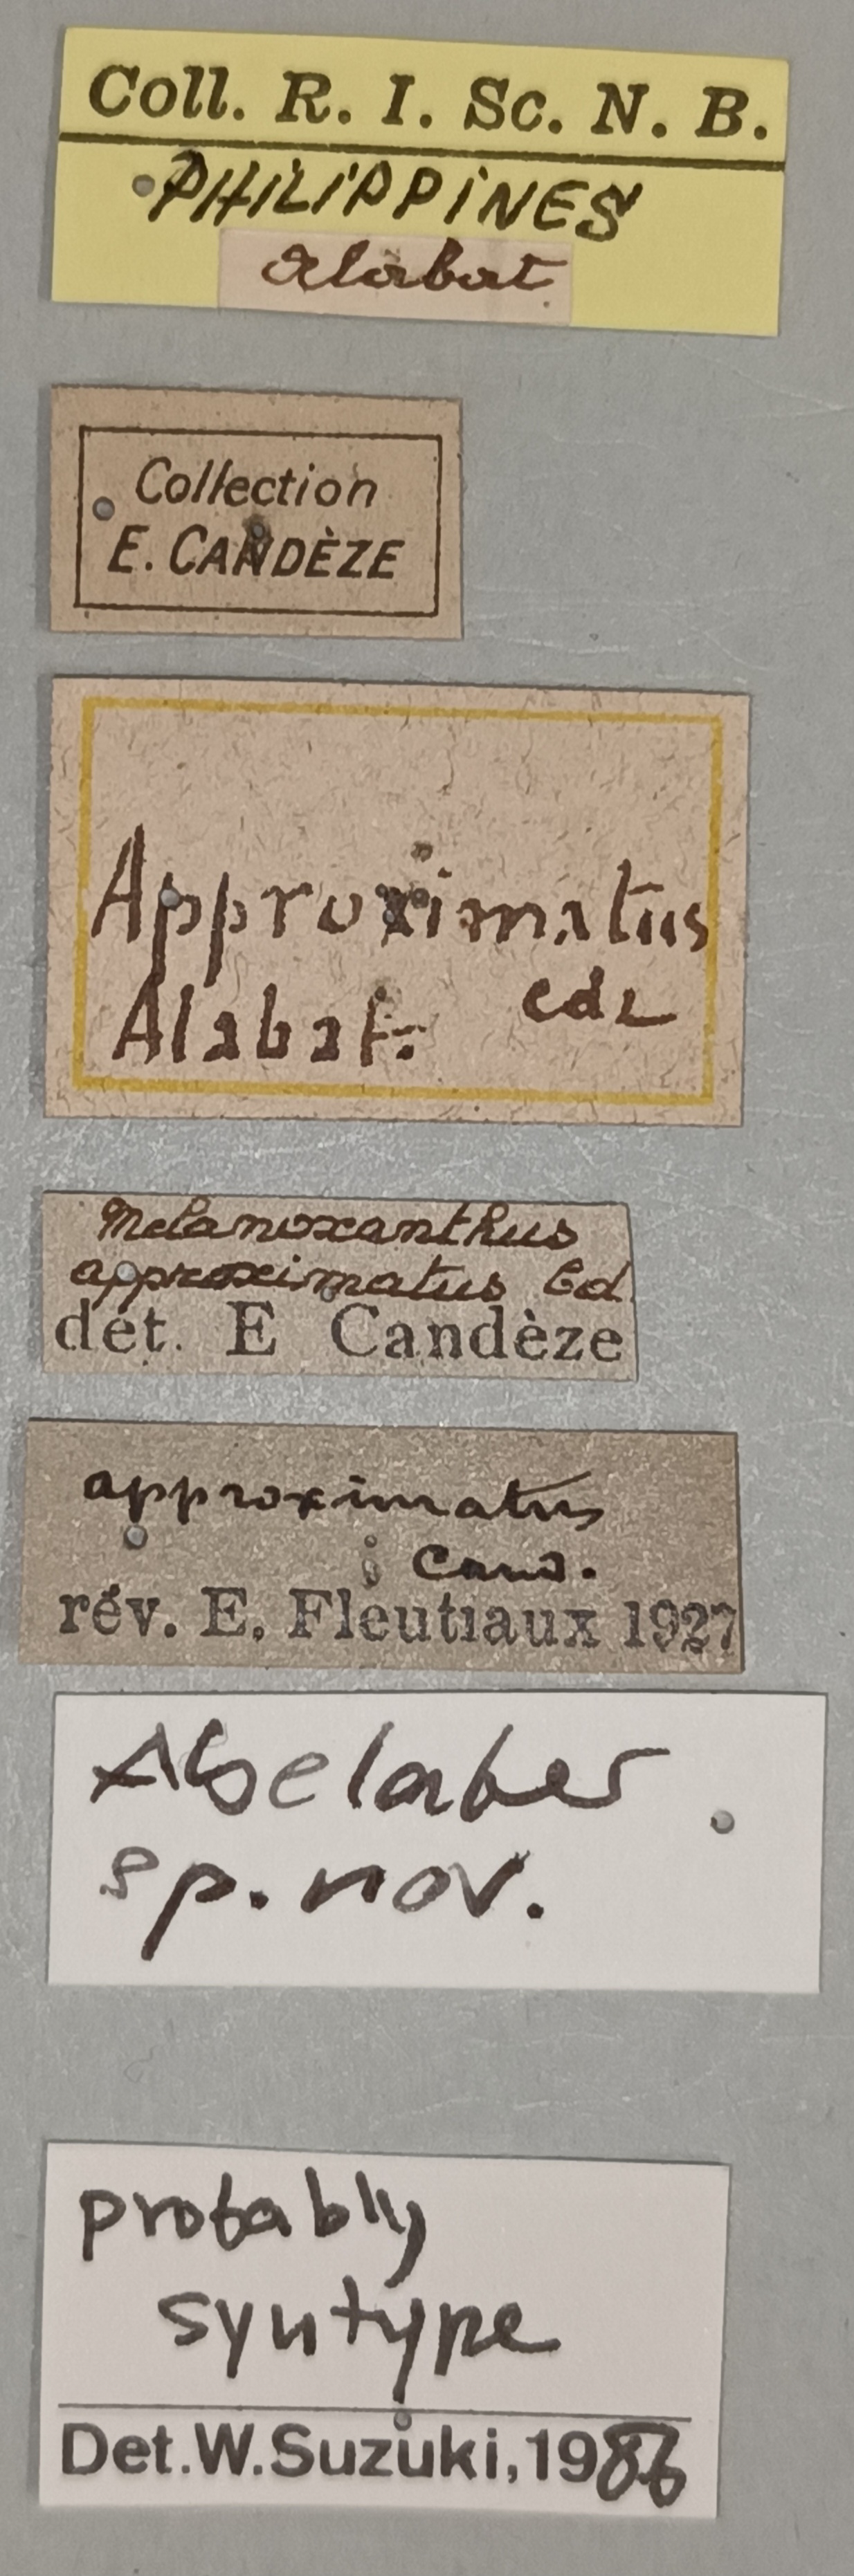 Coll. R. I. Sc. N. B.
PHILIPPINES
Alabat.
Collection
E. CANDÈZE
Approximatus
Alabat. cdz
Melanoxanthus
approximatus Cd.
dét. E Candèze
approximatus
Cand.
rév. E. Fleutiaux 1927
Abelater
sp. nov.
probably
syntype
Det.W.Suzuki,1986